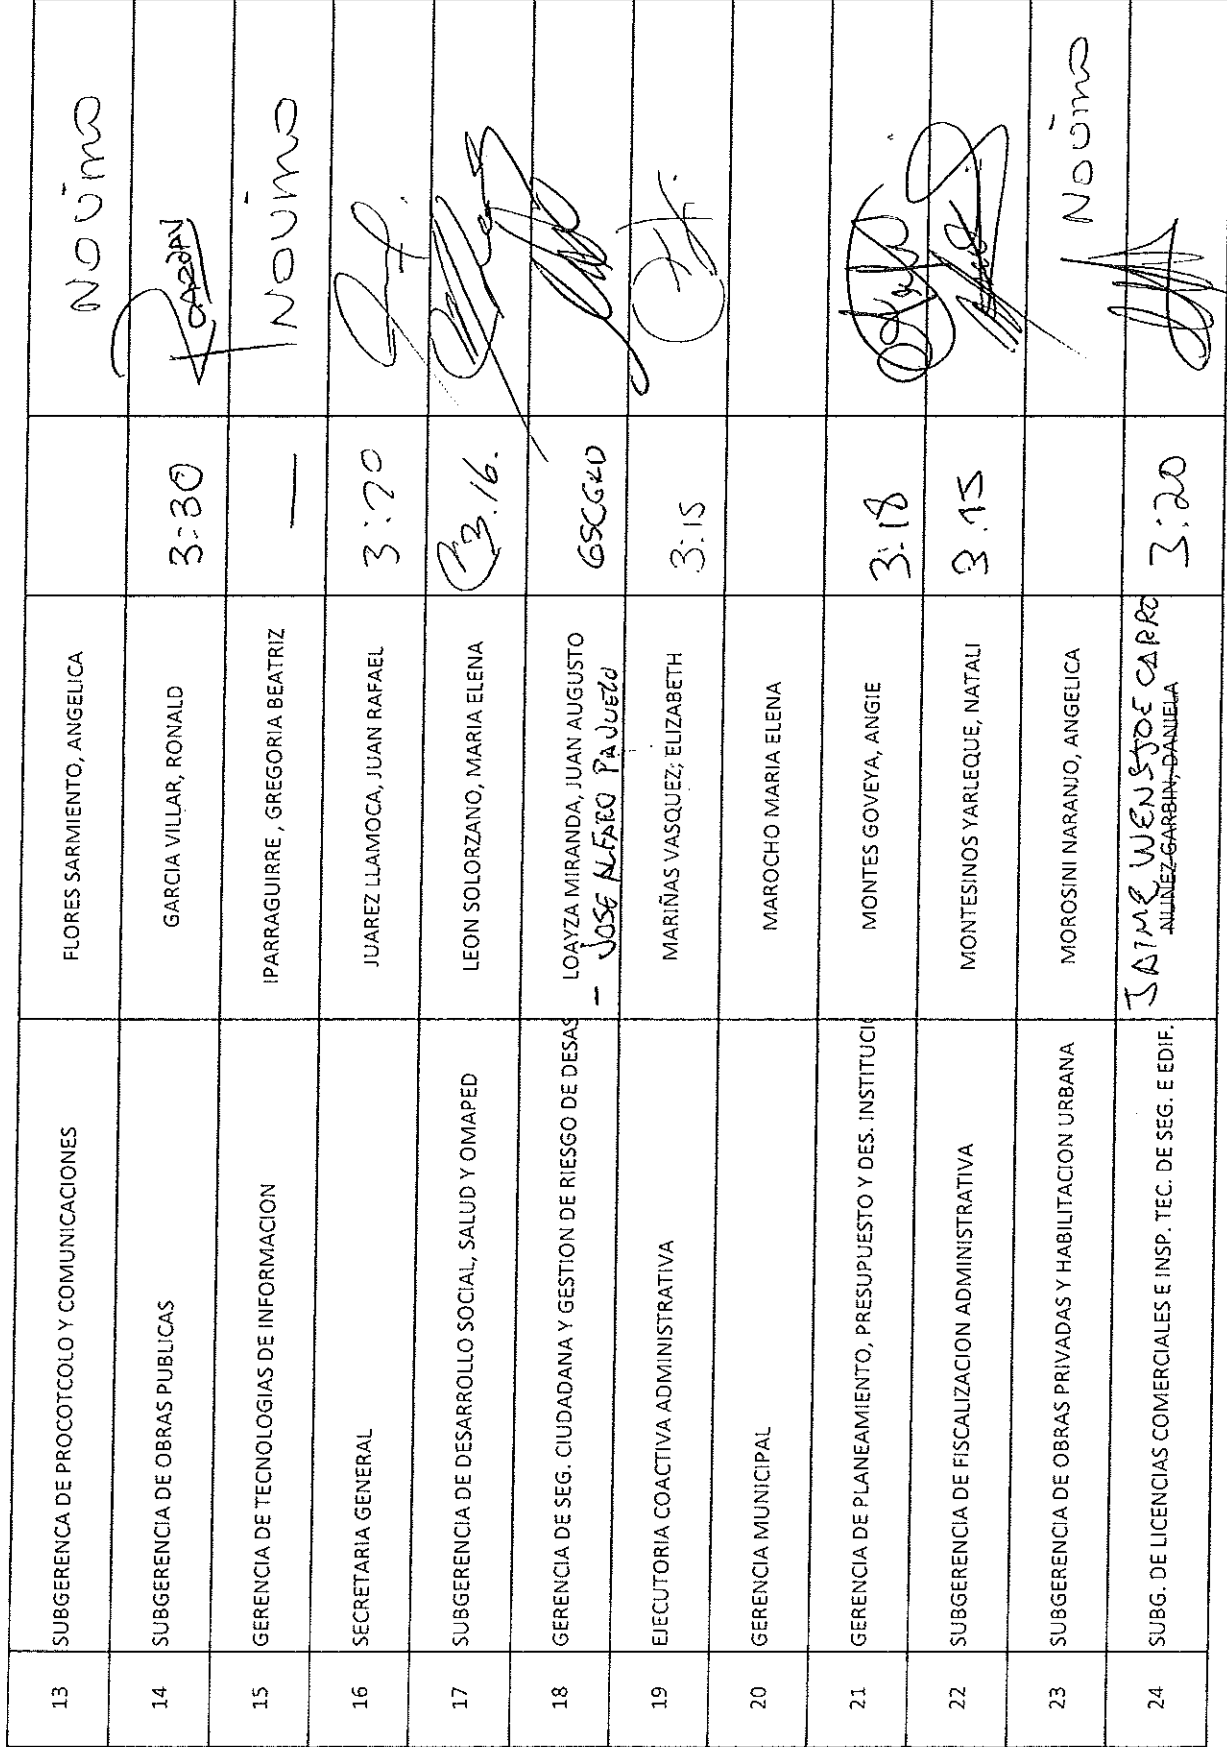 13 SUBGERENCA DE PROCOTCOLO Y COMUNICACIONES FLORES SARMIENTO, ANGELICA NO vino
14 SUBGERENCIA DE OBRAS PUBLICAS GARCIA VILLAR, RONALD 3:30
15 GERENCIA DE TECNOLOGIAS DE INFORMACION IPARRAGUIRRE, GREGORIA BEATRIZ — NO vino
16 SECRETARIA GENERAL JUAREZ LLAMOCA, JUAN RAFAEL 3:20
17 SUBGERENCIA DE DESARROLLO SOCIAL, SALUD Y OMAPED LEON SOLORZANO, MARIA ELENA 3.16.
18 GERENCIA DE SEG. CIUDADANA Y GESTION DE RIESGO DE DESAS LOAYZA MIRANDA, JUAN AUGUSTO
- JOSE ALFARO PAJUELO
19 EJECUTORIA COACTIVA ADMINISTRATIVA MARIÑAS VASQUEZ; ELIZABETH 3:15
20 GERENCIA MUNICIPAL MAROCHO MARIA ELENA
21 GERENCIA DE PLANEAMIENTO, PRESUPUESTO Y DES. INSTITUCIO MONTES GOVEYA, ANGIE 3:18
22 SUBGERENCIA DE FISCALIZACION ADMINISTRATIVA MONTESINOS YARLEQUE, NATALI 3.15
23 SUBGERENCIA DE OBRAS PRIVADAS Y HABILITACION URBANA MOROSINI NARANJO, ANGELICA NO vino
JAIME WENSJOE CARRO
24 SUBG. DE LICENCIAS COMERCIALES E INSP. TEC. DE SEG. E EDIF. NUÑEZ GARBIN, DANIELA 3:20